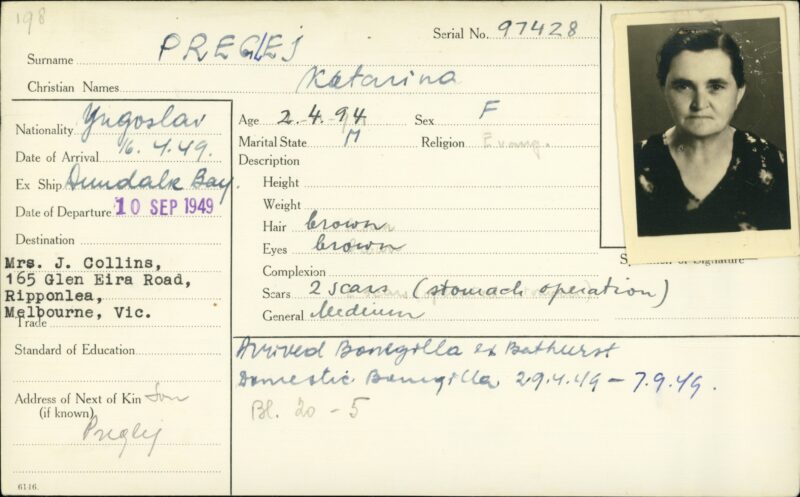 198
Serial No. 97428
Surname PREGLEJ
Christian Names Katarina
Nationality Yugoslav
Date of Arrival 16.4.49.
Ex Ship Dundalk Bay.
Date of Departure 10 SEP 1949
Destination
Mrs. J. Collins,
165 Glen Eira Road,
Ripponlea,
Melbourne, Vic.
Trade
Standard of Education
Address of Next of Kin Son
(if known)
Preglej
6116.
Age 2.4.94 Sex F
Marital State M Religion Evang.
Description
Height
Weight
Hair brown
Eyes brown
Complexion
Scars 2 scars (stomach operation)
General Medium
Specimen of Signature
Arrived Bonegilla ex Bathurst
Domestic Bonegilla 29.4.49 – 7.9.49.
Bl. 20 - 5